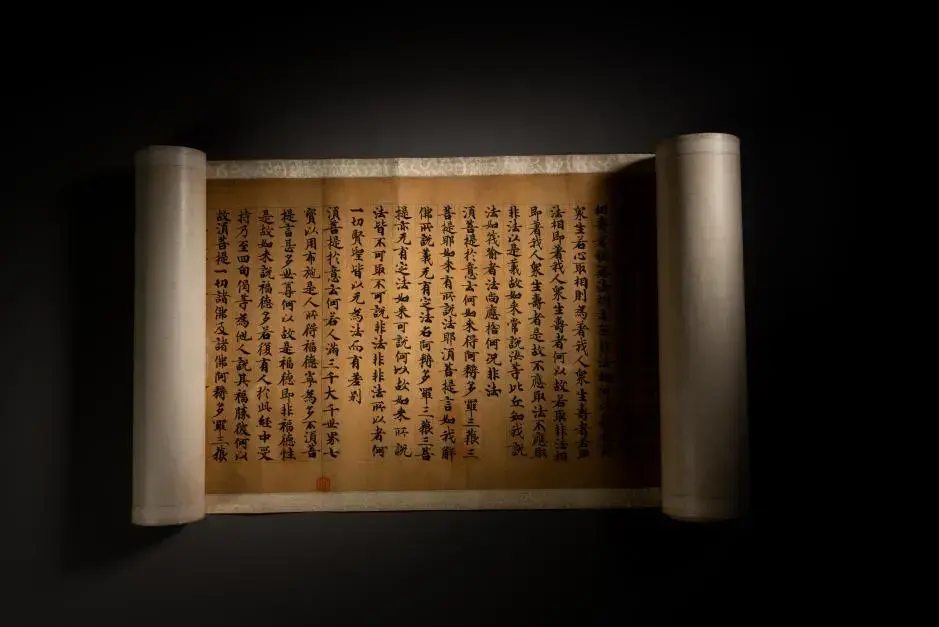 衆生若心取相則為著我人衆生壽者若取
法相即著我人衆生壽者何以故若取非法相
即著我人衆生壽者是故不應取法不應取
非法以是義故如來常說汝等比丘知我說
法如筏喻者法尚應捨何況非法
湏菩提於意云何如來得阿耨多羅三藐三
菩提耶如來有所說法耶湏菩提言如我解
佛所說義无有定法名阿耨多羅三藐三菩
提亦无有定法如來可說何以故如來所說
法皆不可取不可說非法非非法所以者何
一切賢聖皆以无為法而有差別
湏菩提於意云何若人滿三千大千世界七
寶以用布施是人所得福德寧為多不湏菩
提言甚多世尊何以故是福德即非福德性
是故如來說福德多若復有人於此經中受
持乃至四句偈等為他人說其福勝彼何以
故湏菩提一切諸佛及諸佛阿耨多羅三藐